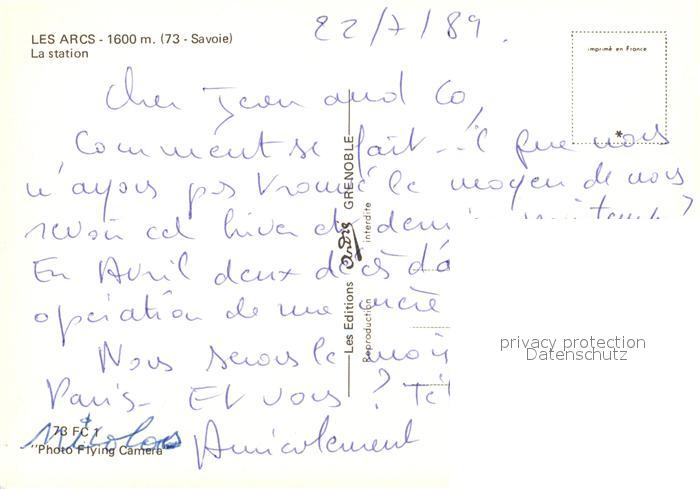 LES ARCS - 1600 m. (73 - Savoie)
La station
22/7/89.
imprimé en France
Cher Jean and Co,
Comment se fait-il que nous
n'ayons pas trouvé le moyen de nous
revoir cet hiver et dern
En Avril deux décès d'a
opération de ma mère
Nous serons le mois
Paris - Et vous ? Tél
Nicolas Amicalement
73 FC 1
"Photo Flying Camera"
Les Editions andré GRENOBLE
Reproduction interdite
privacy protection
Datenschutz